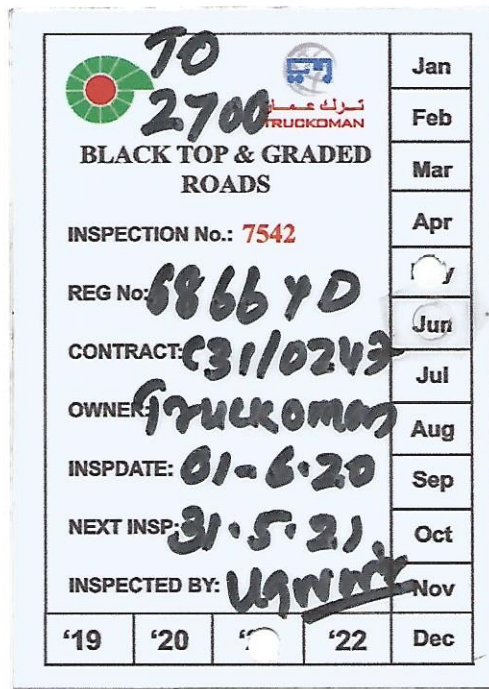 TO
2700
ترك عمان
TRUCKOMAN
BLACK TOP & GRADED
ROADS
INSPECTION No.: 7542
REG No: 6866 YD
CONTRACT: C31/0243
OWNER: Truckoman
INSPDATE: 01-6-20
NEXT INSP: 31.5.21
INSPECTED BY:
Jan
Feb
Mar
Apr
Jun
Jul
Aug
Sep
Oct
Nov
Dec
'19
'20
'22